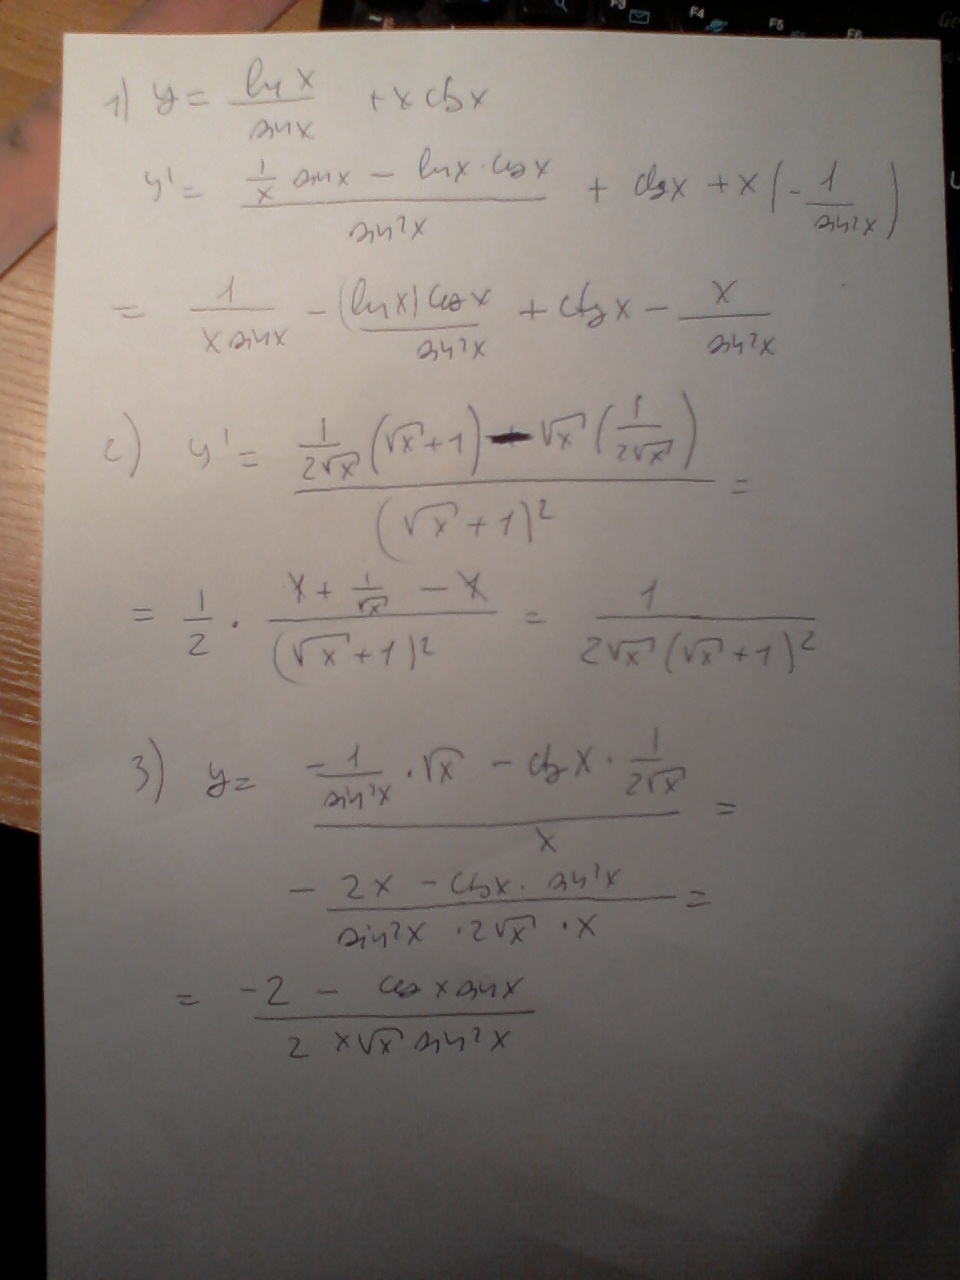 F3 F4 F5 F6
1) y = ln x / sin x + x ctg x
y' = (1/x sin x - ln x · cos x) / sin²x + ctg x + x (- 1/sin²x)
= 1/(x sin x) - (ln x) cos x / sin²x + ctg x - x/sin²x
2) y' = (1/(2√x) (√x + 1) - √x (1/(2√x))) / (√x + 1)² =
= 1/2 · (x + 1/√x - x) / (√x + 1)² = 1 / (2√x (√x + 1)²)
3) y = (- 1/sin²x · √x - ctg x · 1/(2√x)) / x =
- (2x - ctg x · sin²x) / (sin²x · 2√x · x) =
= (-2 - cos x sin x) / (2 x√x sin²x)